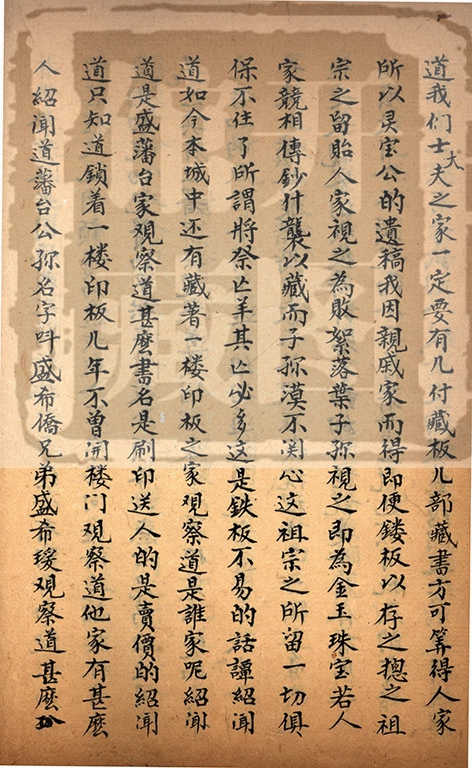 道我们士大夫之家一定要有几付藏板几部藏書方可筭得人家
所以灵宝公的遺稿我因親戚家而得即便鏤板以存之摠之祖
宗之留貽人家視之為敗絮落葉子孫視之即為金玉珠宝若人
家競相傳鈔什襲以藏而子孫漠不関心这祖宗之所留一切俱
保不住了所謂將祭亡羊其亡必多这是鉄板不易的話譚紹聞
道如今本城中还有藏著一楼印板之家观察道是誰家呢紹聞
道是盛藩台家观察道甚麽書名是刷印送人的是賣價的紹聞
道只知道鎖着一楼印板几年不曾開楼门观察道他家有甚麽
人紹聞道藩台公孫名字叫盛希僑兄弟盛希瑗观察道甚麽